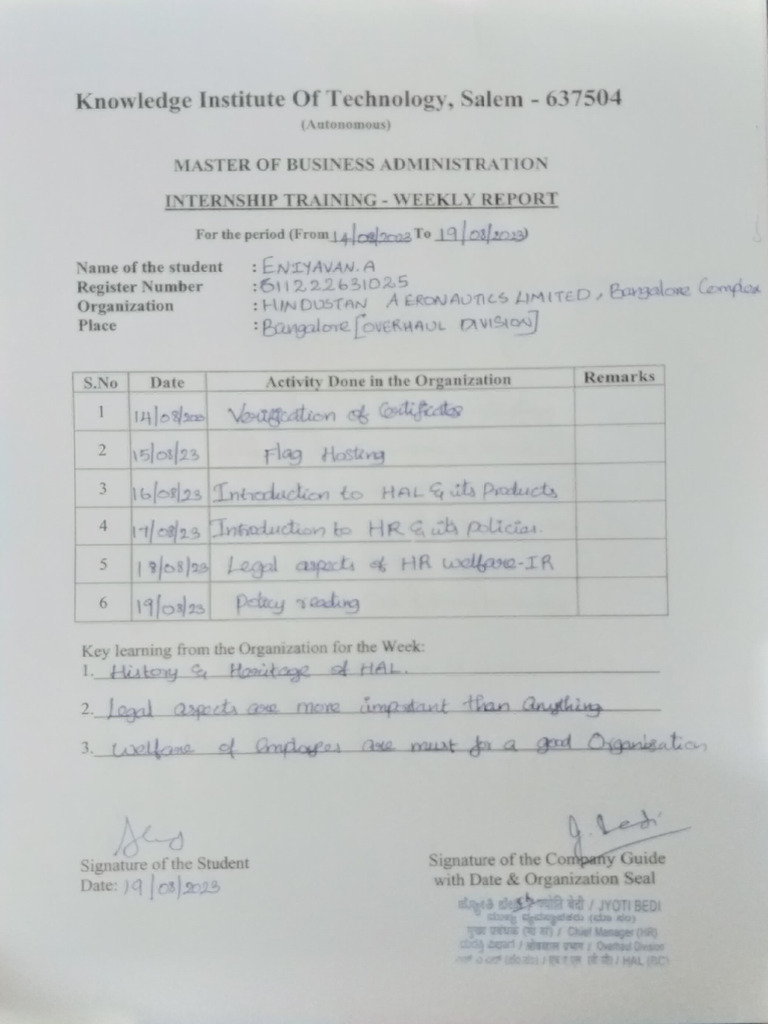 Knowledge Institute Of Technology, Salem - 637504
(Autonomous)
MASTER OF BUSINESS ADMINISTRATION
INTERNSHIP TRAINING - WEEKLY REPORT
For the period (From 14/08/2023 To 19/08/2023)
Name of the student : ENIYAVAN.A
Register Number : 611222631025
Organization : HINDUSTAN AERONAUTICS LIMITED, Bangalore Complex
Place : Bangalore [OVERHAUL DIVISION]
S.No Date Activity Done in the Organization Remarks
1 14/08/200 Verification of Certificates
2 15/08/23 Flag Hosting
3 16/08/23 Introduction to HAL & its Products
4 17/08/23 Introduction to HR & its policies.
5 18/08/23 Legal aspects of HR welfare-IR
6 19/08/23 Policy reading
Key learning from the Organization for the Week:
1. History & Heritage of HAL.
2. Legal aspects are more important than anything
3. Welfare of Employees are must for a good Organisation
J. Bedi
Signature of the Student
Date: 19/08/2023
Signature of the Company Guide
with Date & Organization Seal
ज्योति बेदी / JYOTI BEDI
मुख्य प्रबंधक (मा सं) / Chief Manager (HR)
ओवरहाल प्रभाग / Overhaul Division
/ HAL (BC)